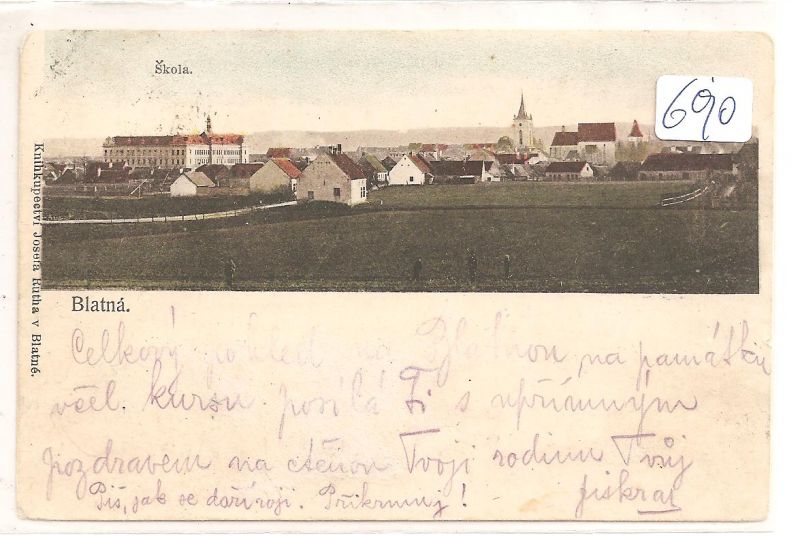 Škola.
690
Knihkupectví Josefa Rutha v Blatné.
Blatná.
Celkový pohled na Blatnou na památku
včel. kursu posílá Ti s upřímným
pozdravem na ctěnou Tvoji rodinu Tvůj
Piš, jak se daří roji. Přikrmuj!